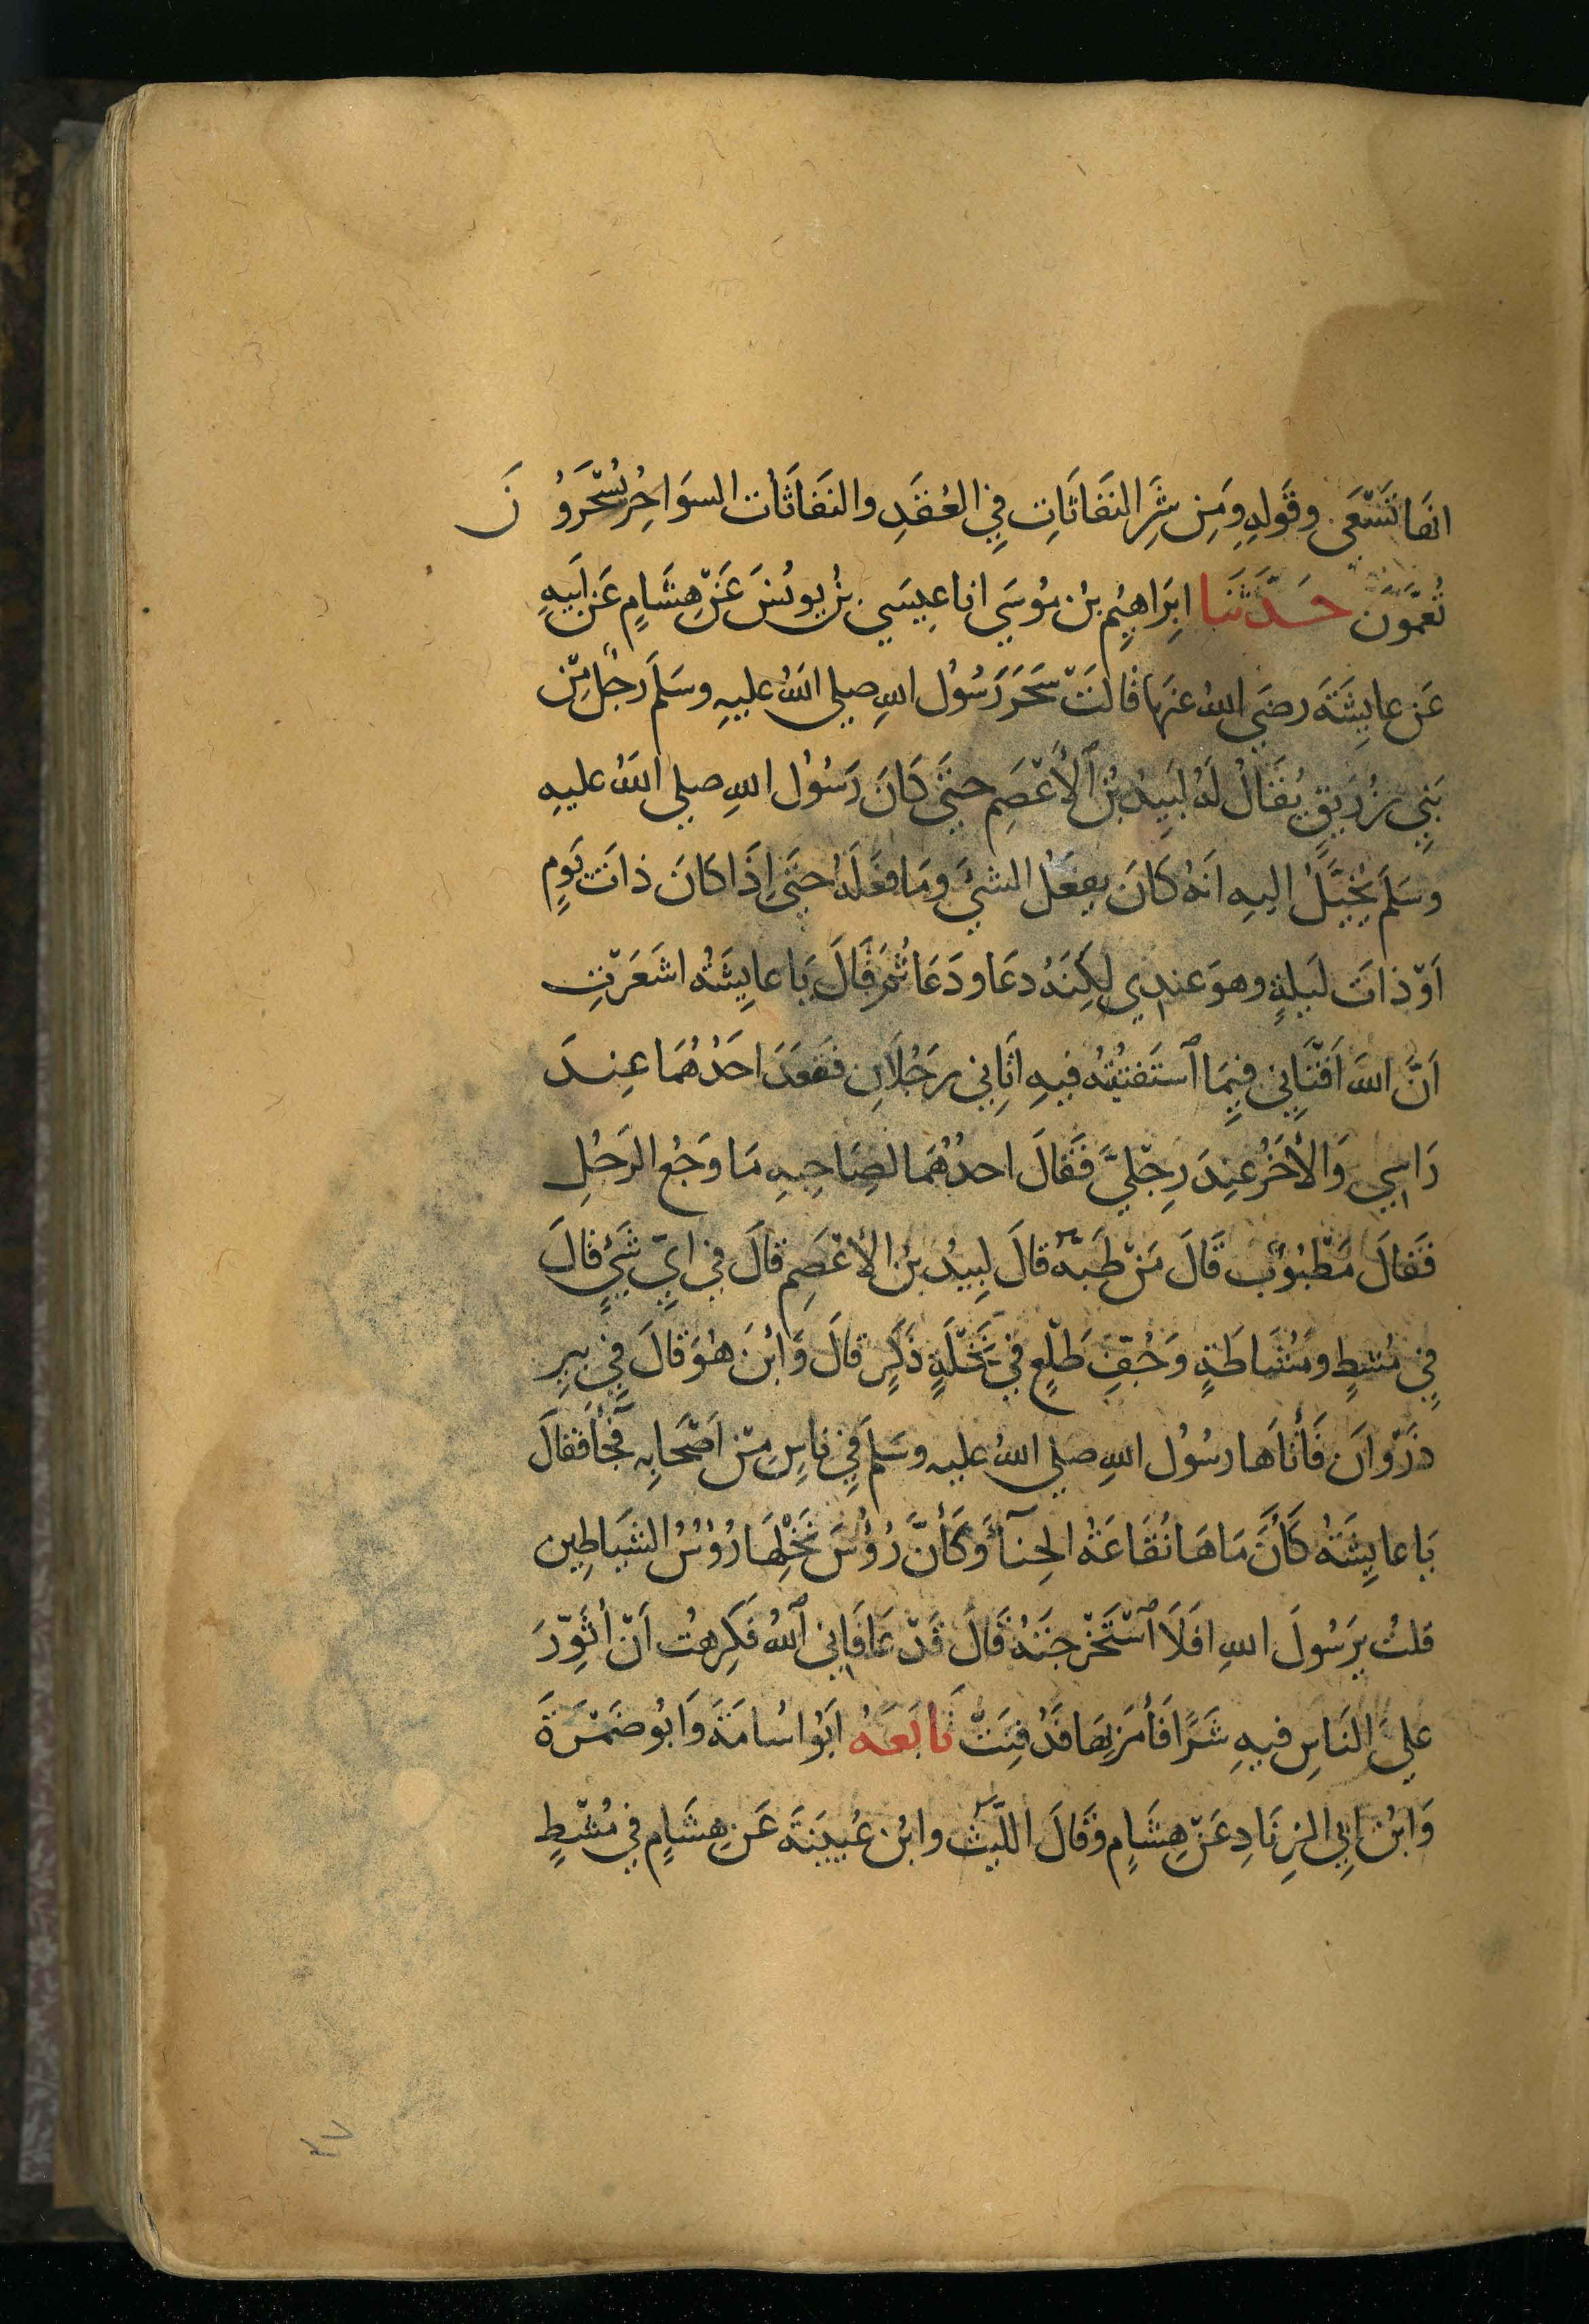 انها تَسْعَى وقَولِهِ وَمَن شَرِ النَفاثَاتِ فِي العُقَدِ والنَفَاثَات السوَاحِرُ تُسْحَرُونَ
تُعَمَّوَن حَدَّثَنَا اِبرَاهِيمُ بنُ مُوسَي انا عِيسَي بنُ يونُسَ عَنْ هِشَامٍ عَن اَبيهِ
عَن عايِشَةَ رضَي اللهُ عنهَا قالَتْ سَحَرَ رَسُوْل اللهِ صلي اللهُ عليهِ وسَلَمَ رَجُلٌ مِنْ
بَنِي زُرَيقٍ يُقَالُ لَهُ لَبِيدُ بنُ ٱلْأعْصَمِ حتَّي كَانَ رَسُوْل اللهِ صلي اللهُ عليهِ
وسَلمَ يُخَيَّلُ اليهِ اَنهُ كَانَ يفعَلُ الشيَء ومَا فعَلَهُ حتَي اِذَا كانَ ذاتَ يَومٍ
اَوْ ذاتَ لَيلةٍ وهوَ عندِي لكِنَهُ دعَا ودَعَا ثُمَ قَالَ يَا عايِشَةُ اشَعَرْتِ
اَنَّ اللهَ اَفْتَانِي فِيمَا ٱستَفتيْتُهُ فيهِ اَتَانِي رَجُلَانِ فقَعَدَ احَدُهُمَا عِندَ
رَاسِي وَالأخَرُ عِندَ رِجْليَّ فقَالَ احدُهُمَا لصَاحِبهِ مَا وَجَعُ الرَجُلِ
فَقالَ مَطْبُوْبٌ قَالَ مَنْ طَبَّهُ قالَ لبِيدُ بنُ الأعْصَمِ قَالَ في ايِّ شَيْءٍ قالَ
فِي مُشطٍ ومُشَاطَةٍ وَجُفِّ طَلْعِ فِي نَخْلَةٍ ذَكَرٍ قالَ وَايْنَ هُوَ قالَ فِي بِيرِ
ذَرْوَانَ فَأتَاهَا رسُوْل اللهِ صلي اللهُ عليهِ وسَلمَ فِي ناسٍ مِنْ اَصْحَابِهِ فجَآءَ فقالَ
يَا عايِشَةُ كَأنَّ مَاهَا نُقَاعَةُ الحِنآءِ وَكَأنَّ رُؤُسَ نَخْلِهَا رُؤُسُ الشيَاطِين
قلتُ يرَسُولَ اللهِ افَلَا ٱسْتَخْرجتَهُ قَالَ قَدْ عَافَانِي ٱللهُ فكَرِهتُ اَنْ أثَوِّرَ
عليَ النَاسِ فيهِ شَرًا فَأمَرَ بِهَا فَدُفِنَتْ تَابَعَهُ ابُوْ اسُامَةَ وَابُو ضمْرَةَ
وَابْنُ ابِي الزِنَادِ عَنْ هِشَامٍ وقَالَ اللَّيْثُ وابْن عُيَيْنَةَ عَن هِشَامٍ في مُشْطٍ